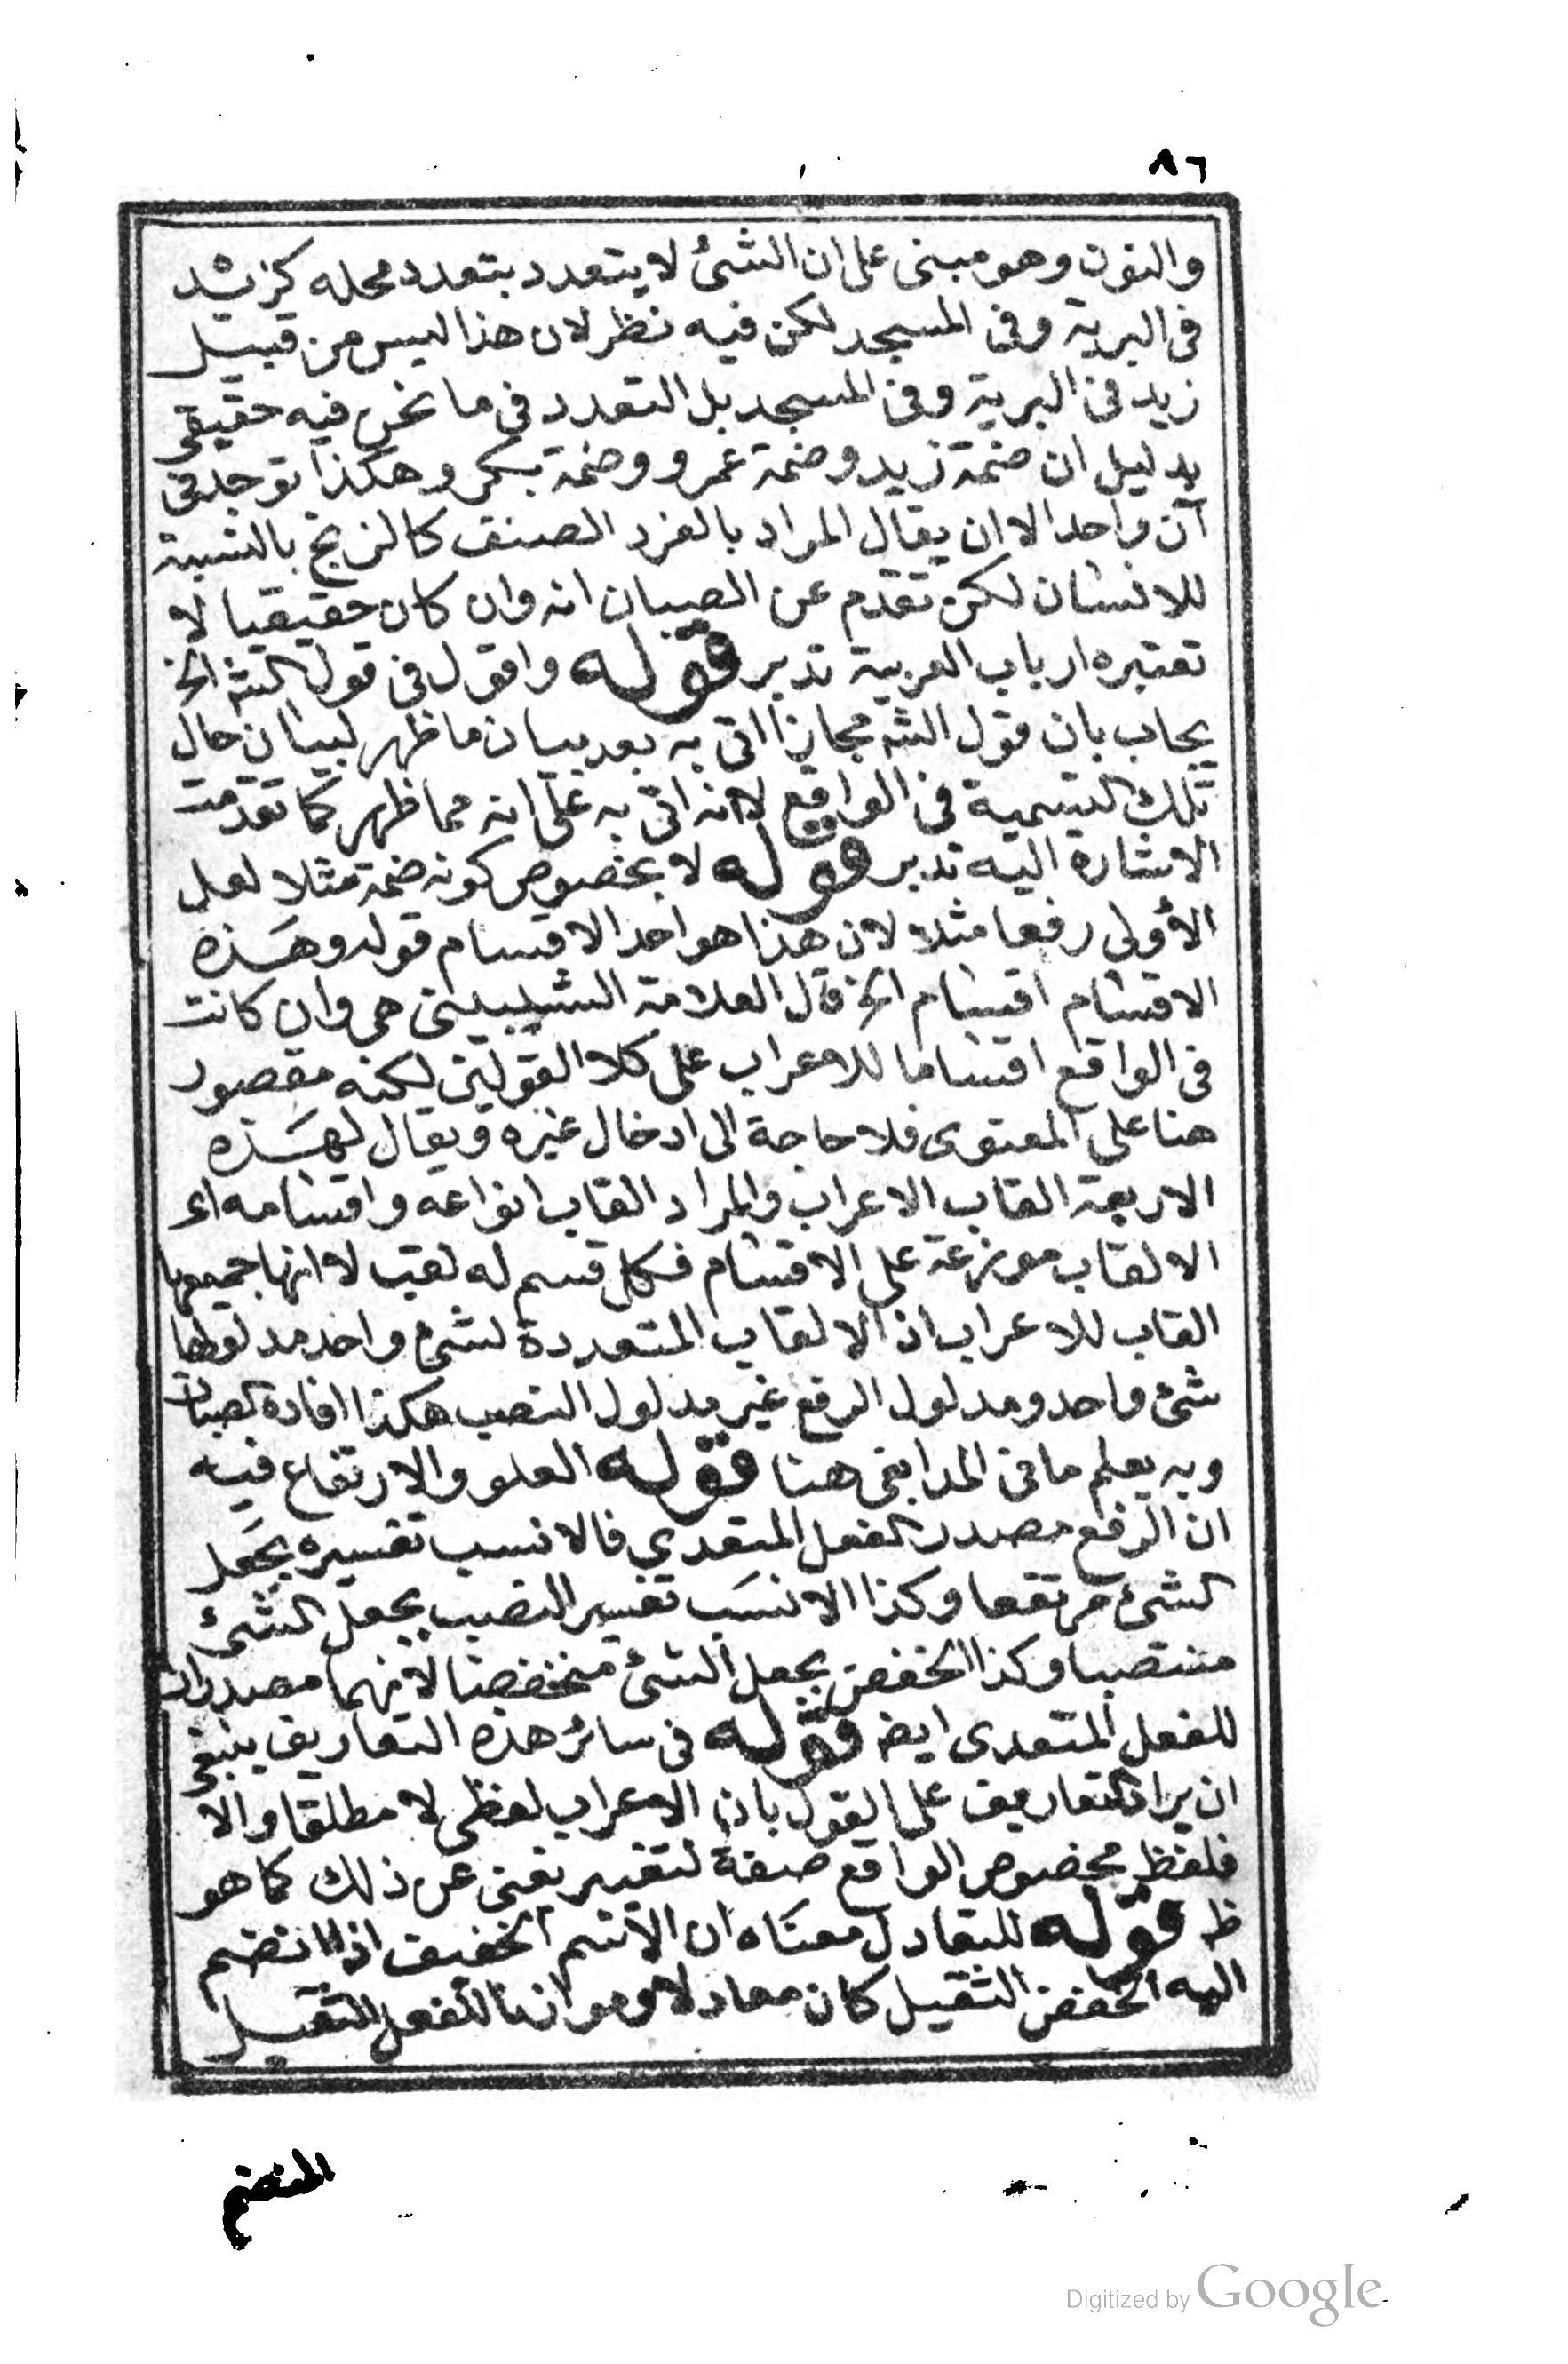 ٨٦
والنون وهو مبنى على ان الشئ لا يتعدد بتعدد محله كزيد
فى البرية وفى المسجد لكن فيه نظر لان هذا ليس من قبيل
زيد فى البرية وفى المسجد بل التعدد فى ما نحن فيه حقيقى
بدليل ان ضمة زيد وضمة عمرو وضمة بكر وهكذا توجد فى
آن واحد الا ان يقال المراد بالفرد الصنف كالزنج بالنسبة
للانسان لكن تقدم عن الصبان انه وان كان حقيقيا لا
تعتبره ارباب العربية تدبر قوله واقول فى قول الشه الخ
يجاب بان قول الشه مجازا اتى به بعد بيان ما ظهر لبيان حال
تلك التسمية فى الواقع لا انه اتى به على انه مما ظهر كما تقدمت
الاشارة اليه تدبر قوله لا بخصوص كونه ضمة مثلا لعل
الأولى رفعا مثلا لان هذا هو احد الاقسام قوله وهذه
الاقسام اقسام الخ قال العلامة الشيبينى هى وان كانت
فى الواقع اقساما للاعراب على كلا القولين لكنه مقصور
هنا على المعنوى فلا حاجة الى ادخال غيره ويقال لهذه
الاربعة القاب الاعراب والمراد القاب انواعه واقسامه اى
الالقاب موزعة على الاقسام فكل قسم له لقب لا انها جميعها
القاب للاعراب اذ الالقاب المتعددة لشئ واحد مدلولها
شئ واحد ومدلول الرفع غير مدلول النصب هكذا افاده الصبان
وبه يعلم ما فى المدابغى هنا قوله العلو والارتفاع فيه
ان الرفع مصدر الفعل المتعدي فالانسب تفسيره بجعل
الشئ مرتفعا وكذا الانسب تفسير النصب بجعل الشئ
منتصبا وكذا الخفض بجعل الشئ منخفضا لانهما مصدران
للفعل المتعدى ايض قوله فى سائر هذه التعاريف ينبغى
ان يراد التعاريف على القول بان الاعراب لفظى لا مطلقا والا
فلفظ مخصوص الواقع صفة لتغيير يغنى عن ذلك كما هو
ظ قوله للتعادل معناه ان الاسم الخفيف اذا انضم
اليه الخفض الثقيل كان معادلا وموازنا للفعل الثقيل
المنضم
Digitized by Google